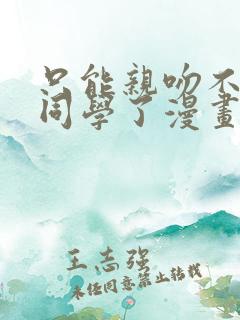 只能親吻不
同學了漫畫
王志强
未经同意禁止转载